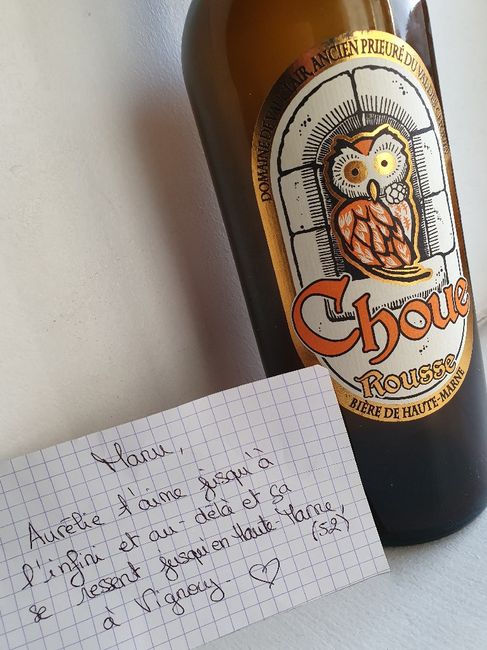 DOMAINE DE VAUCLAIR, ANCIEN PRIEURÉ DU VAL DES
Choue
Rousse
BIÈRE DE HAUTE-MARNE
Manu,
Aurélie t'aime jusqu'à
l'infini et au-delà et sa
se ressent jusqu'en Haute-Marne,
(52)
à Vignory. ♡